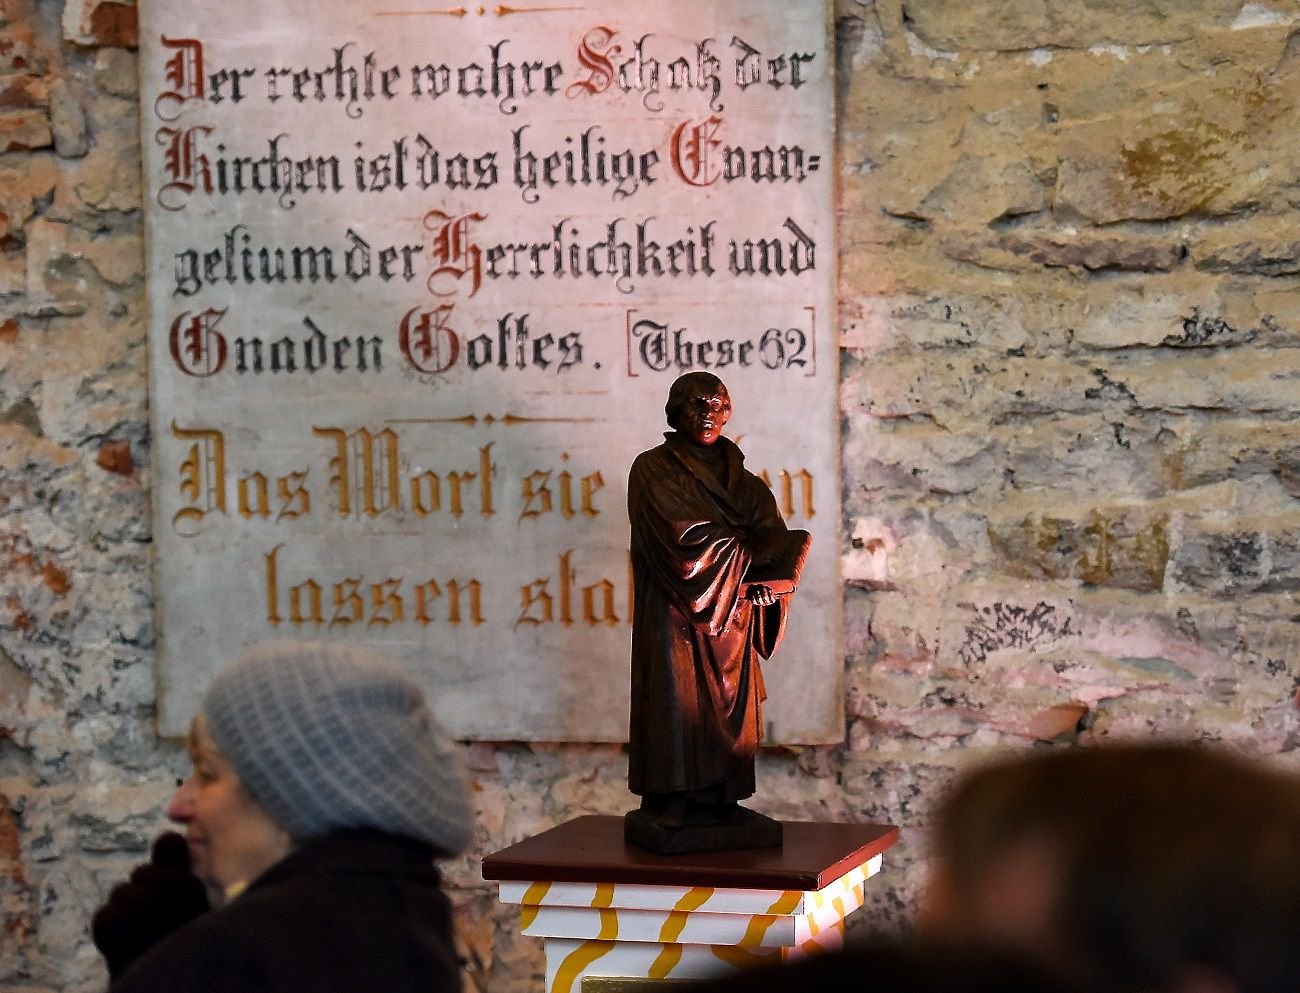 Der rechte wahre Schatz der
Kirchen ist das heilige Evan-
gelium der Herrlichkeit und
Gnaden Gottes. [These 62]
Das Wort sie
lassen